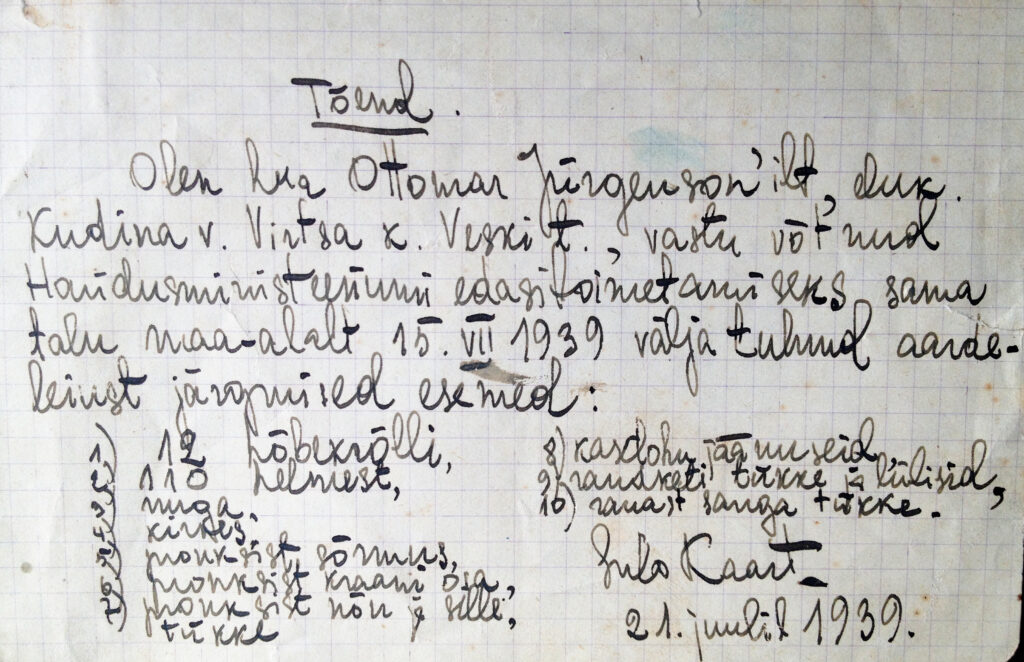 Tõend.
Olen hra Ottomar Jürgenson'ilt, eluk.
Kudina v. Virtsa k. Veski t., vastu võt'nud
Haridusministeeriumi edasitoimetamiseks sama
talu maa-alalt 15. VII 1939 välja tulnud aarde-
leiust järgmised esemed:
1) 12 hõbekrõlli,
2) 110 helmest,
3) nuga,
4) kirves,
5) pronksist sõrmus,
6) pronksist kraani osa,
7) pronksist nõu ja selle,
tükke
8) kasdohu jäänuseid,
9) rauaketi tükke ja lülisid,
10) rauast sanga tükke.
Sulo Kaart
21. juulil 1939.